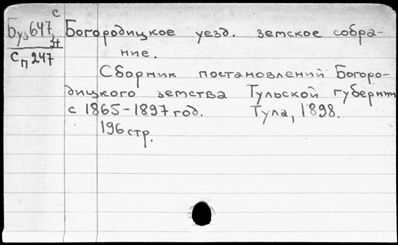 с
Буз647 Богородицкое уезд. земское собра-
Сп247 ние.
Сборник постановлений Богоро-
дицкого земства Тульской губернии
с 1865-1897 год. Тула, 1898.
196 стр.